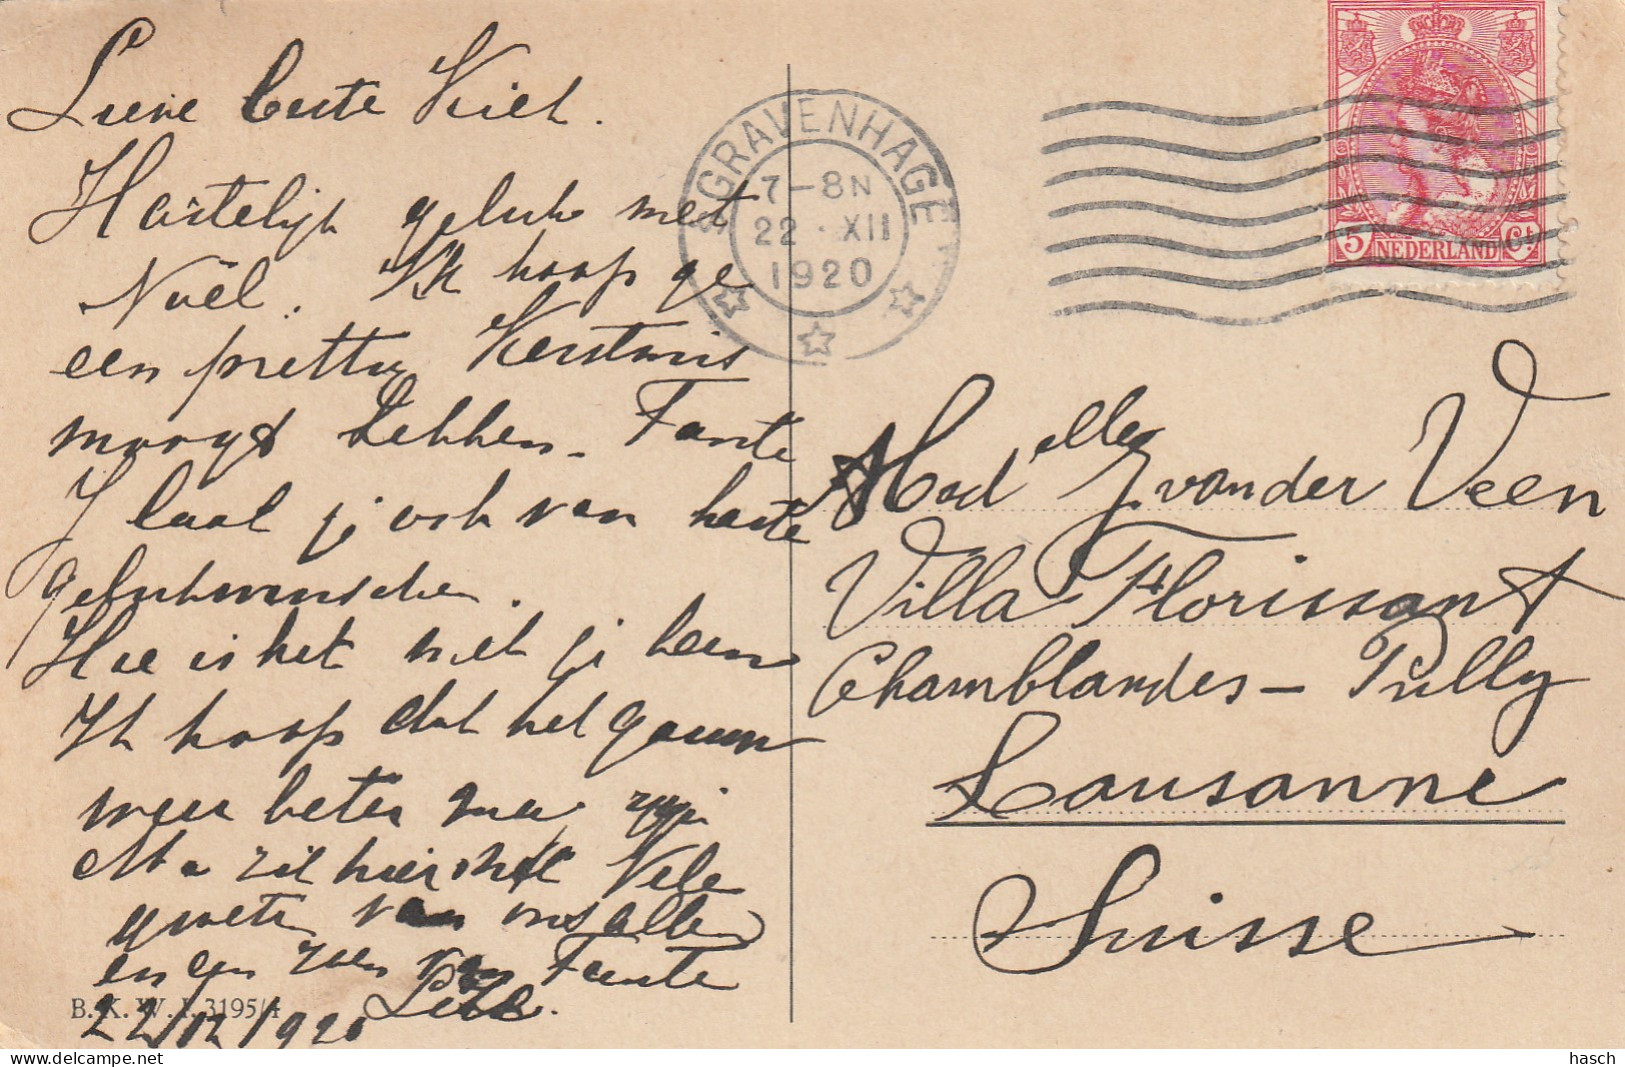 Lieve beste Kiek.
Hartelijk geluk met
Noël. Ik hoop ge
een prettig Kerstmis
moogt hebben. Tante
J laat je ook van harte
gelukwenschen.
Hoe is het met je been
Ik hoop dat het gauw
weer beter mag zijn
Ma zit hier met Vele
groeten van ons allen
en een zoen van Tante
22/12/1920
B. K. W. I. 3195/4
'S GRAVENHAGE
7-8N
22·XII
1920
5 NEDERLAND Ct
Mad elle J. van der Veen
Villa Florissant
Chamblandes - Pully
Lausanne
Suisse
hasch